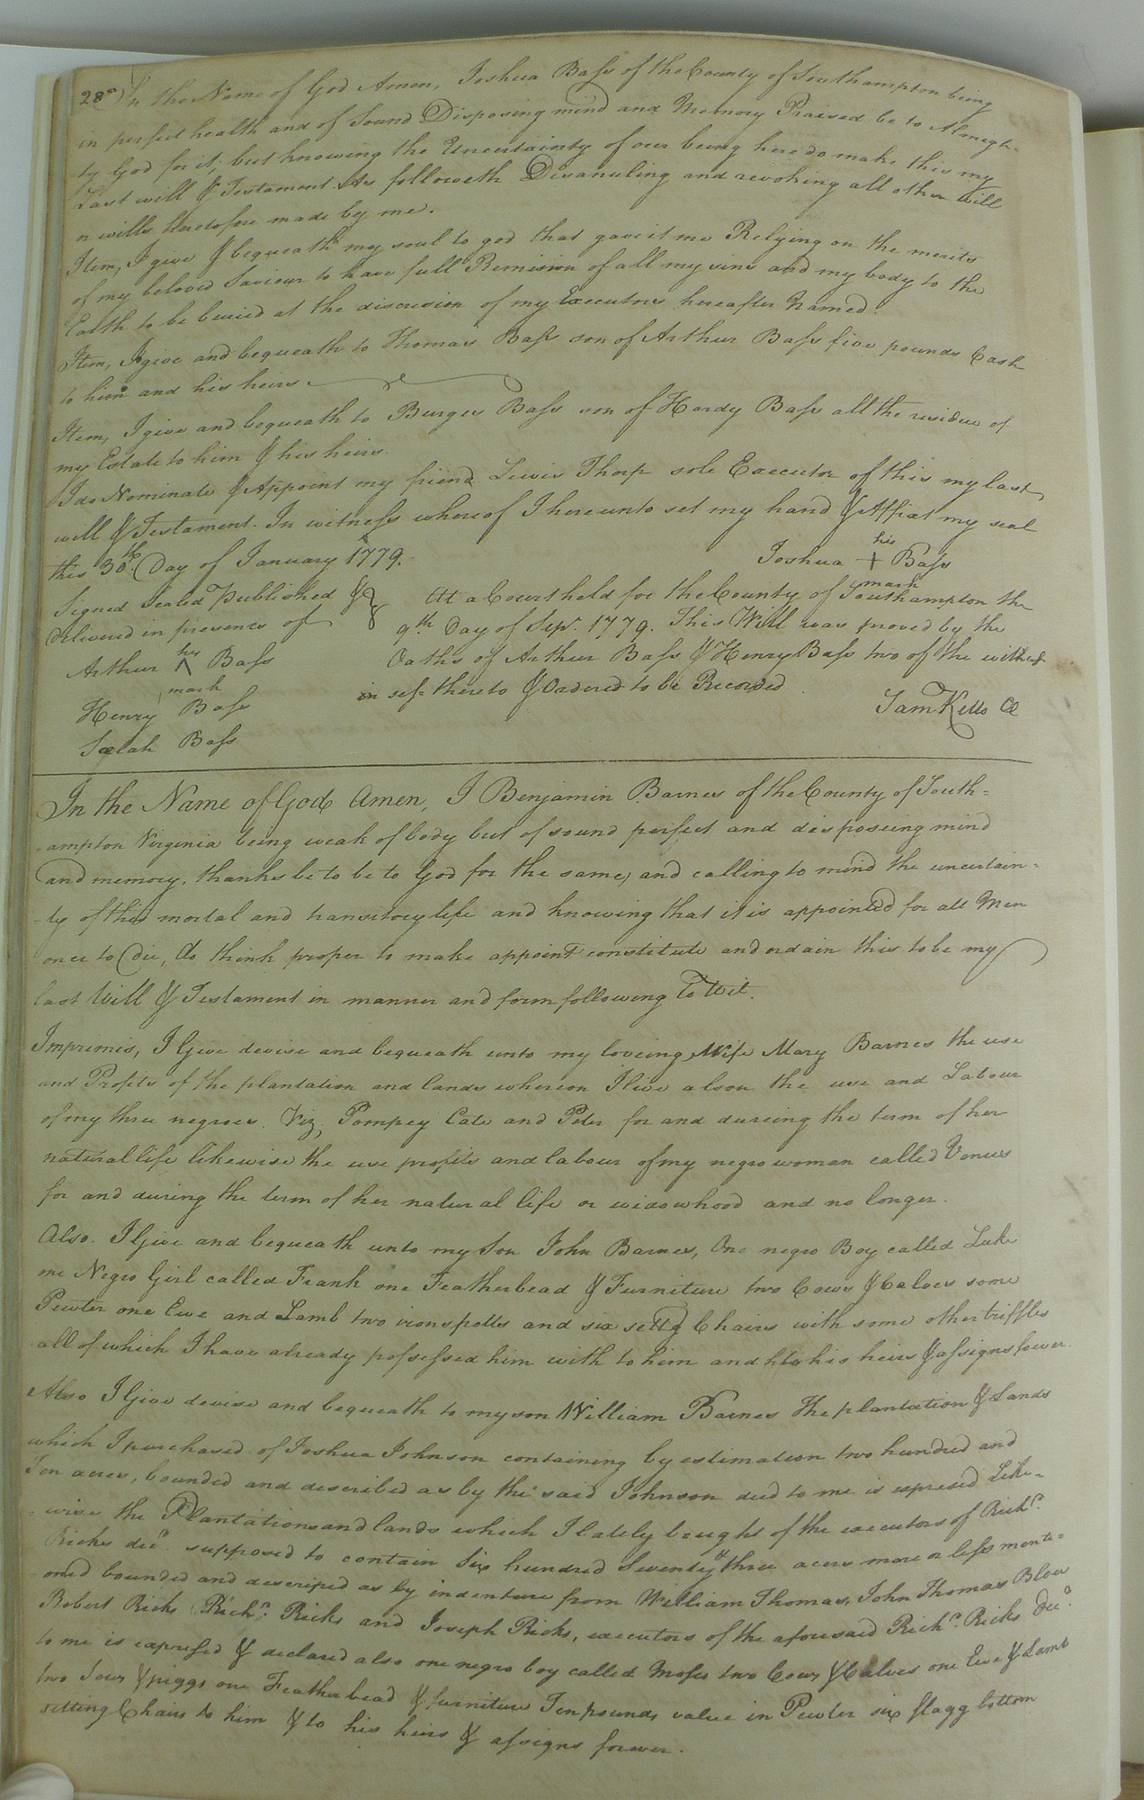 280) In the Name of God Amen, Joshua Bass of the County of Southampton being
in perfect health and of Sound Disposing mind and Memory Praised be to Almigh-
ty God for it; but knowing the Uncertainty of our being here do make this my
Last will & Testament As followeth Disanuling and revoking all other will
n wills heretofore made by me.
Item, I give & bequeath my soul to god that gave it me Relying on the merits
of my beloved Saviour to have full Remision of all my sins and my body to the
Earth to be buried at the discresion of my Executors hereafter Named.
Item, I give and bequeath to Thomas Bass son of Arthur Bass five pounds Cash
to him and his heirs
Item, I give and bequeath to Burges Bass son of Hardy Bass all the residue of
my Estate to him & his heirs.
I do Nominate & Appoint my friend Lewis Thorp sole Executor of this my last
will & Testament. In witness whereof I hereunto set my hand & Affixt my seal
this 30th Day of January 1779.
Joshua his + mark Bass
Signed Sealed Published &
delivered in presence of
Arthur his mark Bass
Henry Bass
Sarah Bass
At a Court held for the County of Southampton the
9th Day of Sepr. 1779. This Will was proved by the
Oaths of Arthur Bass & Henry Bass two of the witnes
ses thereto & Ordered to be Recorded
Sam Kello Cl
In the Name of God Amen, I Benjamin Barnes of the County of South=
ampton Virginia being weak of body but of sound perfect and desposeing mind
and memory, thanks be to be to God for the same, and calling to mind the uncertain=
-ty of this mortal and transitory life and knowing that it is appointed for all Men
once to Die, do think proper to make appoint constitute and ordain this to be my
last Will & Testament in manner and form following To Wit.
Imprimis, I Give devise and bequeath unto my loveing Wife Mary Barnes the use
and Profits of the plantation and lands whereon I live alsoe the use and Labour
of my three negroes. Viz, Pompey Cate and Peter for and dureing the term of her
natural life likewise the use profits and labour of my negro woman called Venus
for and during the term of her natural life or widowhood and no longer.
Also. I Give and bequeath unto my Son John Barnes, One negro Boy called Luke
one Negro Girl called Frank one Featherbead & Furniture two Cows & Calves some
Pewter one Ewe and Lamb two irons potts and six settg Chairs with some other triffles
all of which I have already possessed him with to him and his heirs & assigns forever.
Also I Give devise and bequeath to my son William Barnes The plantation & Lands
which I purchased of Joshua Johnson containing by estimation two hundred and
Ten acres, bounded and described as by the said Johnson deed to me is expresed Like=
=wise the Plantations and lands which I lately bought of the executors of Richd.
Ricks decd. supposed to contain Six hundred Seventy & three acers more or less menti=
oned bounded and descriped as by indenture from William Thomas, John Thomas Blow
Robert Ricks Richd. Ricks and Joseph Ricks, executors of the aforesaid Richd. Ricks decd.
to me is expressed & declared also one negro boy called Moses two Cows & Calves one Ewe & Lamb
two Sows & piggs one Featherbead & furniture Ten pounds value in Pewter six flagg bottom
setting Chairs to him & to his heirs & assigns forever.